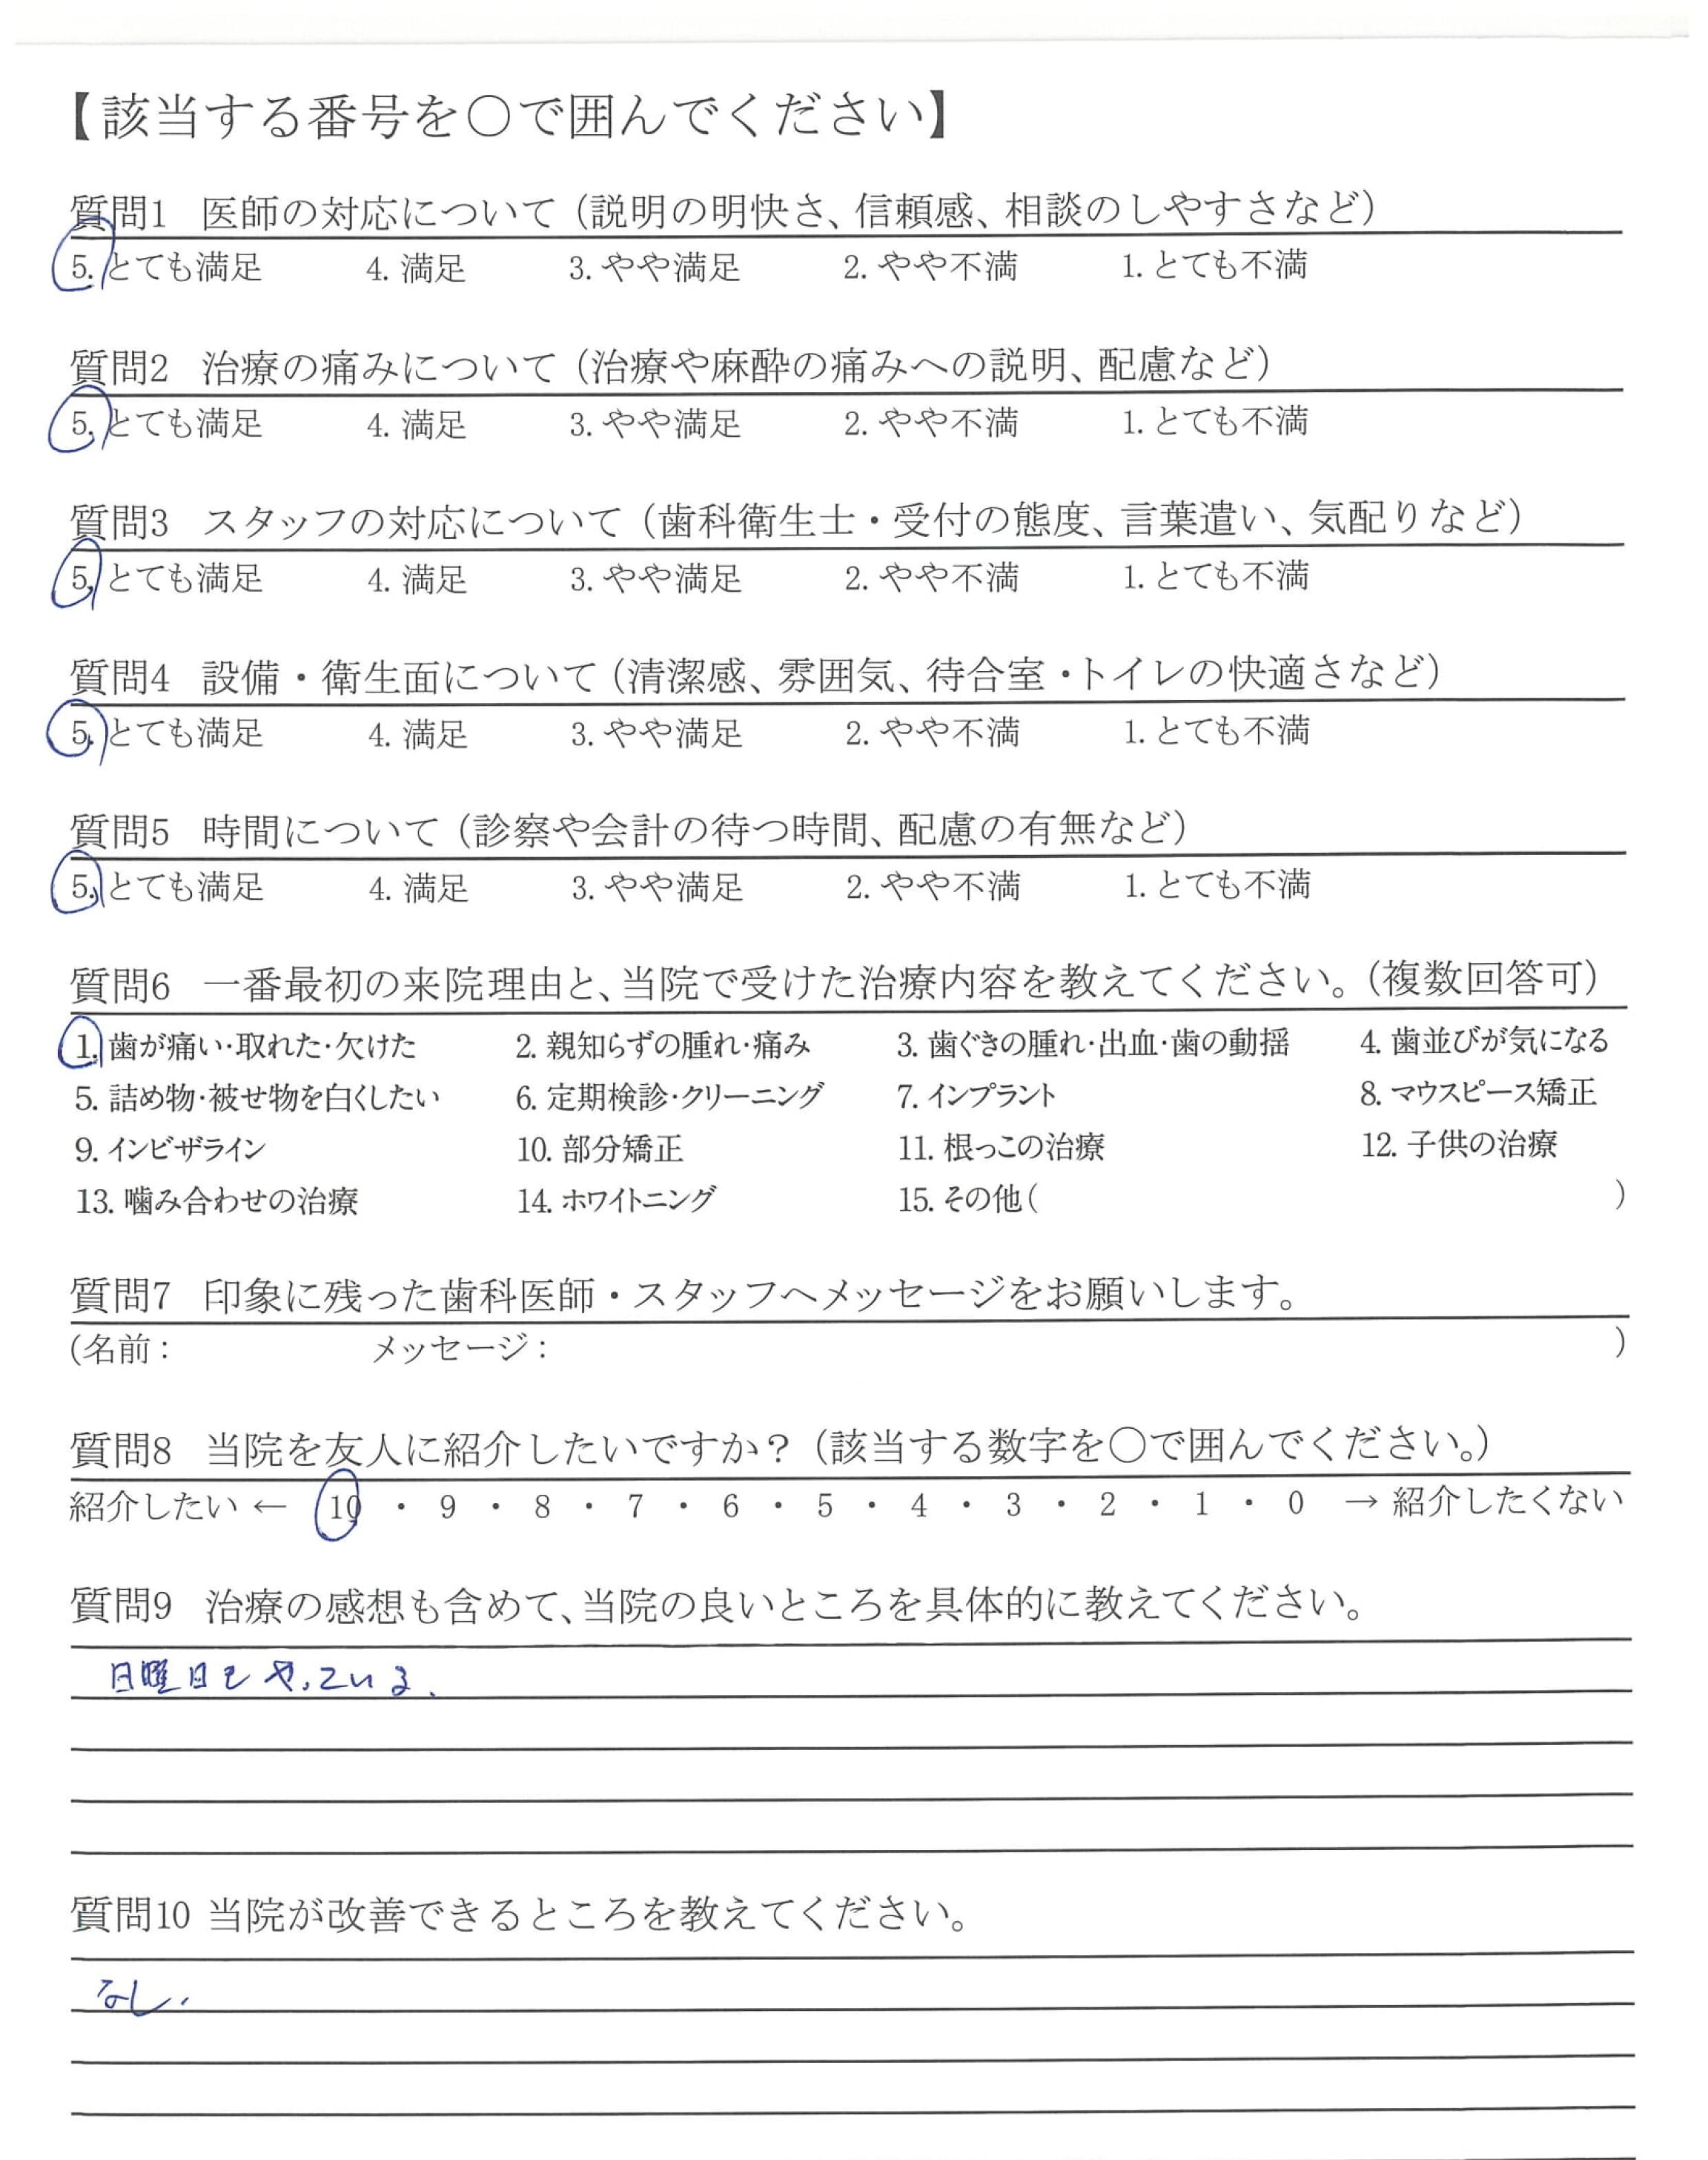 【該当する番号を〇で囲んでください】
質問1 医師の対応について（説明の明快さ、信頼感、相談のしやすさなど）
5. とても満足 4. 満足 3. やや満足 2. やや不満 1. とても不満
質問2 治療の痛みについて（治療や麻酔の痛みへの説明、配慮など）
5. とても満足 4. 満足 3. やや満足 2. やや不満 1. とても不満
質問3 スタッフの対応について（歯科衛生士・受付の態度、言葉遣い、気配りなど）
5. とても満足 4. 満足 3. やや満足 2. やや不満 1. とても不満
質問4 設備・衛生面について（清潔感、雰囲気、待合室・トイレの快適さなど）
5. とても満足 4. 満足 3. やや満足 2. やや不満 1. とても不満
質問5 時間について（診察や会計の待つ時間、配慮の有無など）
5. とても満足 4. 満足 3. やや満足 2. やや不満 1. とても不満
質問6 一番最初の来院理由と、当院で受けた治療内容を教えてください。（複数回答可）
1. 歯が痛い・取れた・欠けた 2. 親知らずの腫れ・痛み 3. 歯ぐきの腫れ・出血・歯の動揺 4. 歯並びが気になる
5. 詰め物・被せ物を白くしたい 6. 定期検診・クリーニング 7. インプラント 8. マウスピース矯正
9. インビザライン 10. 部分矯正 11. 根っこの治療 12. 子供の治療
13. 噛み合わせの治療 14. ホワイトニング 15. その他（ ）
質問7 印象に残った歯科医師・スタッフへメッセージをお願いします。
（名前： メッセージ： ）
質問8 当院を友人に紹介したいですか？（該当する数字を〇で囲んでください。）
紹介したい ← 10 ・ 9 ・ 8 ・ 7 ・ 6 ・ 5 ・ 4 ・ 3 ・ 2 ・ 1 ・ 0 → 紹介したくない
質問9 治療の感想も含めて、当院の良いところを具体的に教えてください。
日曜日もやっている.
質問10 当院が改善できるところを教えてください。
なし.